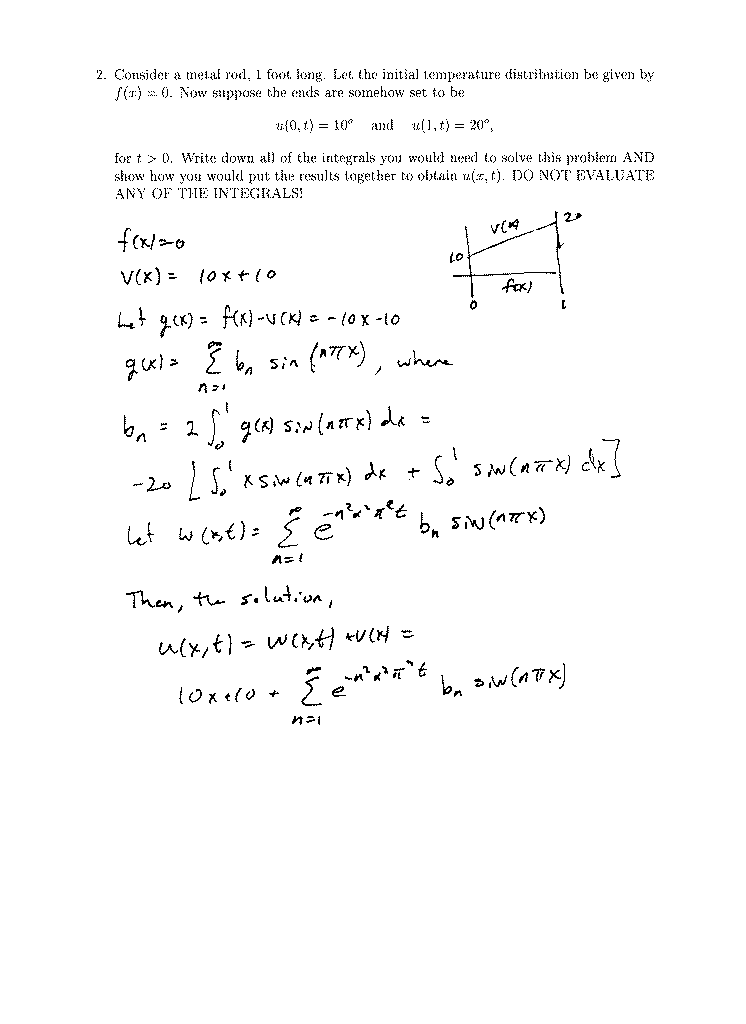 2. Consider a metal rod, 1 foot long. Let the initial temperature distribution be given by
f(x) = 0. Now suppose the ends are somehow set to be
u(0, t) = 10° and u(1, t) = 20°,
for t > 0. Write down all of the integrals you would need to solve this problem AND
show how you would put the results together to obtain u(x, t). DO NOT EVALUATE
ANY OF THE INTEGRALS!
f(x)=0
V(x) = 10x+10
20
V(x)
10
f(x)
0 1
Let g(x) = f(x)-v(x) = -10x-10
g(x) = ∑_{n=1}^{∞} b_n sin(nπx), where
b_n = 2 ∫_0^1 g(x) sin(nπx) dx =
-20 [∫_0^1 x sin(nπx) dx + ∫_0^1 sin(nπx) dx]
Let w(x,t) = ∑_{n=1}^{∞} e^{-n²α²π²t} b_n sin(nπx)
Then, the solution,
u(x,t) = w(x,t) + v(x) =
10x+10 + ∑_{n=1}^{∞} e^{-n²α²π²t} b_n sin(nπx)